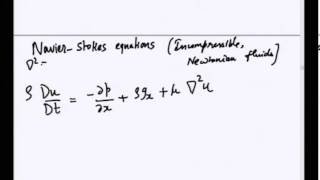 Navier-Stokes equations (Incompressible,
Newtonian fluids)
∇² =
ρ Du/Dt = -∂p/∂x + ρgₓ + μ ∇²u